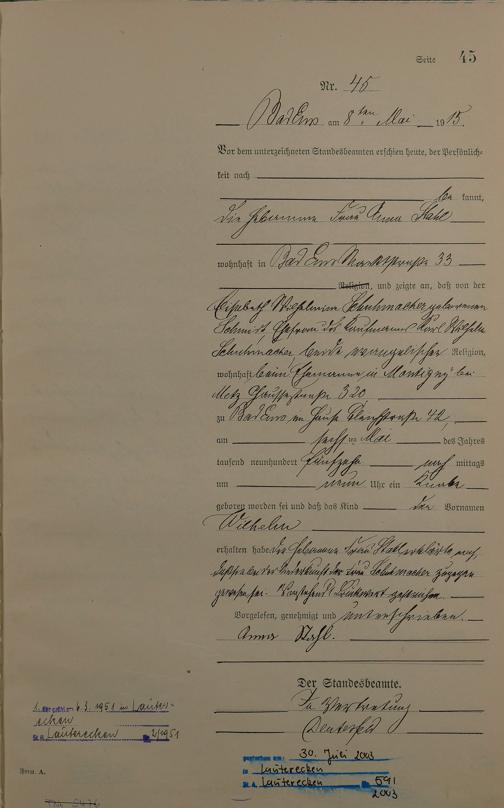 Seite 45
Nr. 45
Bad Ems am 8ten Mai 1915.
Vor dem unterzeichneten Standesbeamten erschien heute, der Persönlich-
keit nach
be kannt,
die Hebamme Frau Anna Stahl
wohnhaft in Bad Ems Marktstraße 33
Religion, und zeigte an, daß von der
Elisabeth Wilhelmine Schuhmacher geborenen
Schmidt, Ehefrau des Kaufmanns Karl Wilhelm
Schuhmacher beide evangelischer Religion,
wohnhaft beim Ehemanne in Montigny bei
Metz Chausseestraße 320,
zu Bad Ems im Hause 42,
am sechsten Mai des Jahres
tausend neunhundert fünfzehn nach mittags
um neun Uhr ein Knabe
geboren worden sei und daß das Kind den Vornamen
Wilhelm
erhalten habe. Die Hebamme Frau Stahl erklärte, auch
daß sie bei der Niederkunft der Frau Schuhmacher zugegen
gewesen sei. Vorstehend Druckwort gestrichen
Vorgelesen, genehmigt und unterschrieben.
Anna Stahl.
Der Standesbeamte.
In Vertretung
1. 6.3.1951 in Lauter-
ecken
St.A. Lauterecken Nr. 2/1951
Form. A.
gestorben am: 30. Juli 2003
in Lauterecken
St. A. Lauterecken Nr. 591
2003